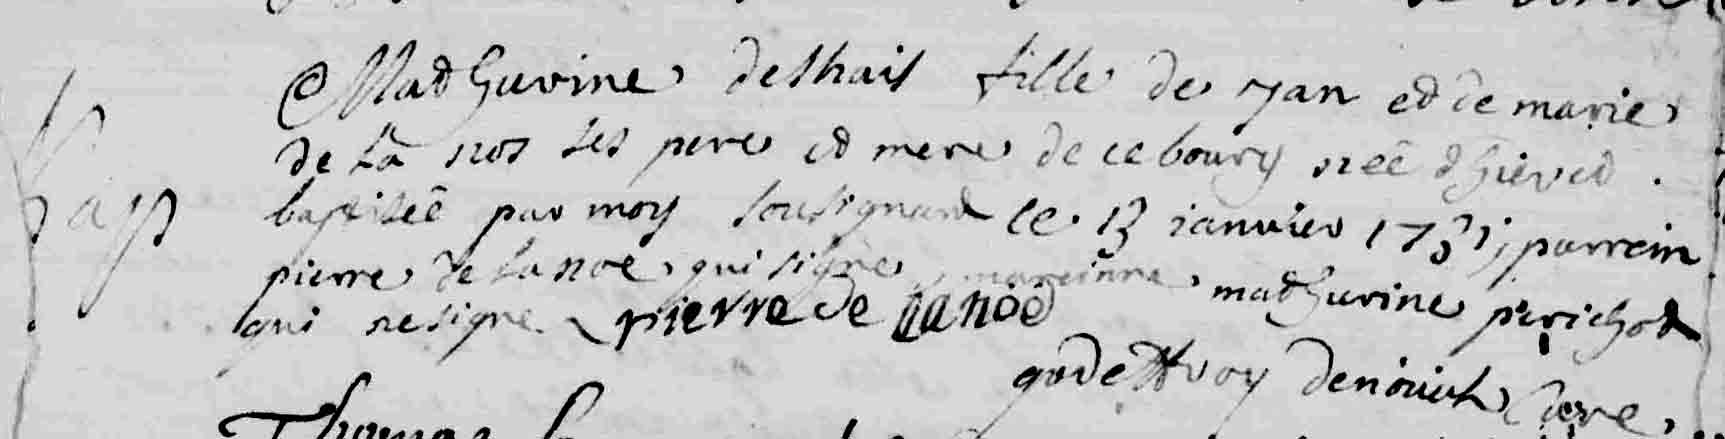 Mathurine deshais fille de jan et de marie
de la noe ses pere et mere de ce bourg née d'hier et
bap
baptiseê par moy sousignant le 13 janvier 1731, parrein
pierre de la noe qui signe, mareinne mathurine perichot
qui ne signe pierre de lanoë
godeffroy curé
Thomas